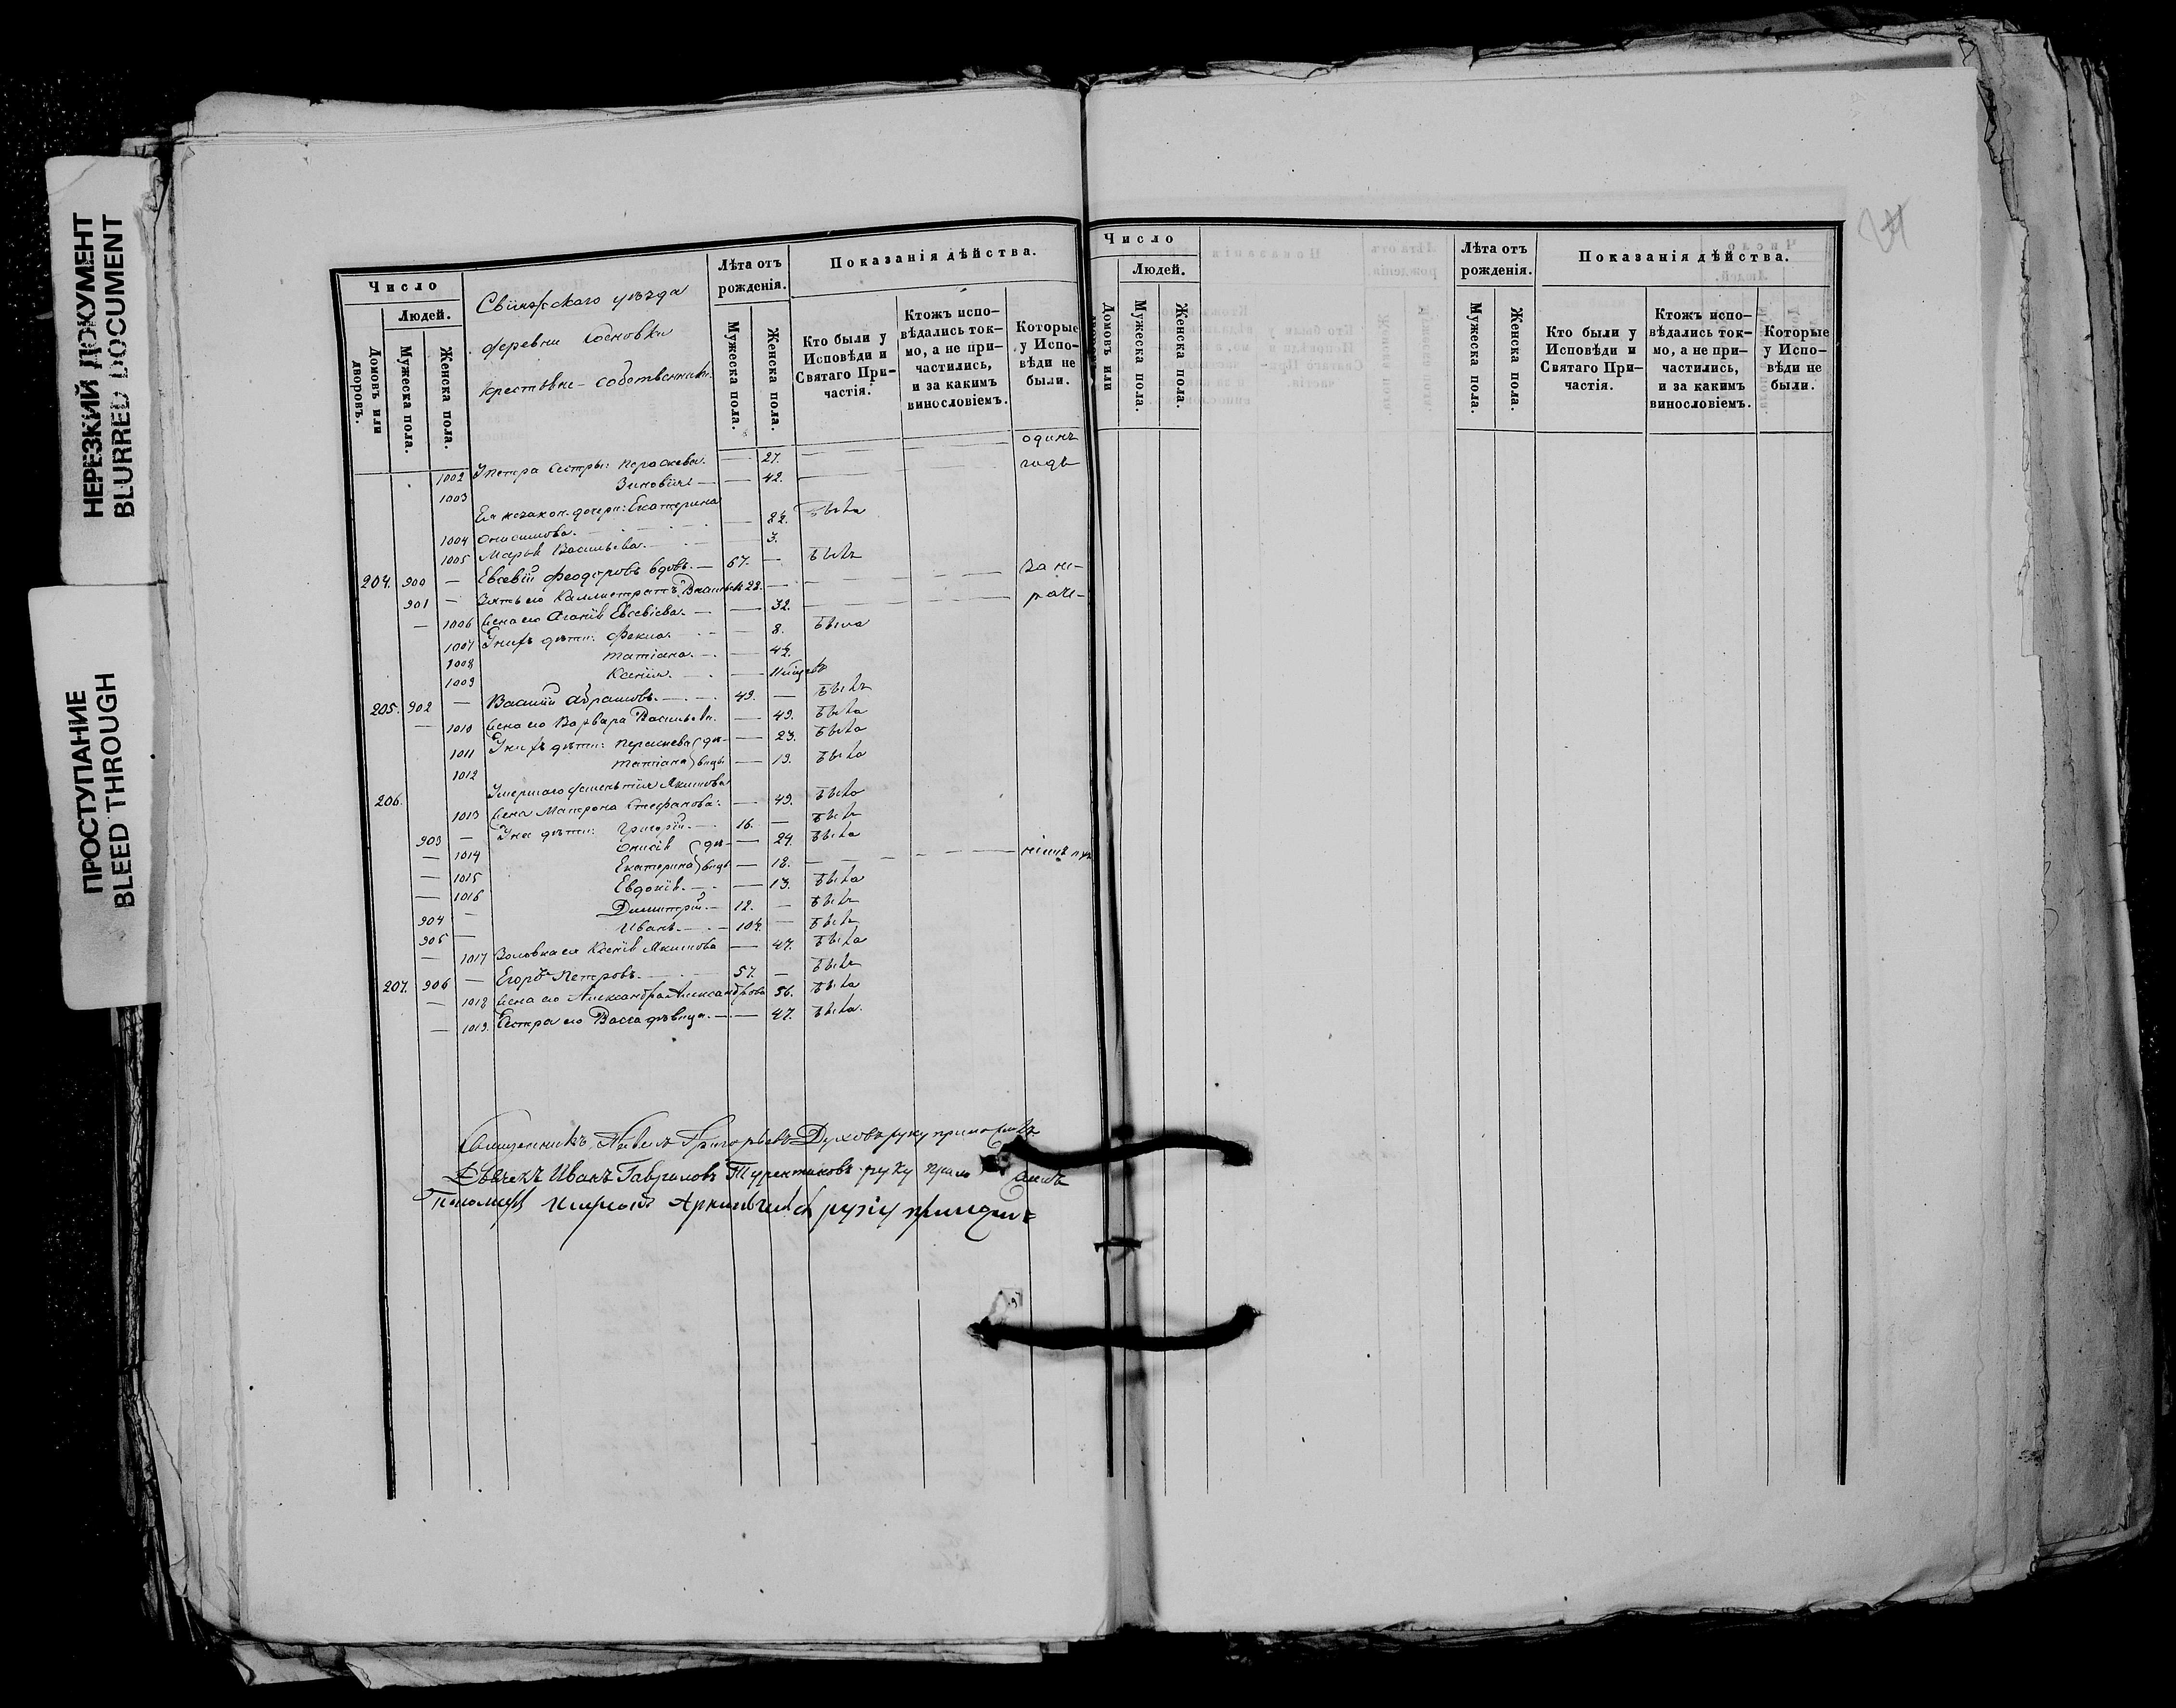 НЕРЕЗКИЙ ДОКУМЕНТ
BLURRED DOCUMENT
ПРОСТУПАНИЕ
BLEED THROUGH
Число
Людей.
Домовъ или дворовъ.
Мужеска пола.
Женска пола.
уѣзда
деревни Сосновки
крестьяне-собственники.
Лѣта отъ рожденія.
Мужеска пола.
Женска пола.
Показанія дѣйства.
Кто были у Исповѣди и Святаго При-частія.
Ктожъ испо-вѣдались ток-мо, а не при-частились, и за какимъ винословіемъ.
Которые у Испо-вѣди не были.
одинъ
1002 Петра сестры: Параскева. — 27. годъ
1003 Зиновія — 42.
Ея незакон. дочери: Екатерина
1004 Онисимова. — 22. была
1005 Марья Васильева. — 3.
204. 900 — Евсевій Феодоровъ вдовъ. — 67. — былъ
901 — Зять его Каллистратъ 28. — за не-
— 1006 Жена его Агафія Евсевіева. — 32. раде-
1007 У нихъ дѣти: Фекла. — 8. была
1008 Татіана. — 4½.
1009 Ксенія. —
205. 902 — Василій Абрамовъ. — 49. — былъ
— 1010 Жена его Варвара Васильева. — 49. была
1011 У нихъ дѣти: Параскева дѣ- — 23. была
1012 Татіана вицы — 19. была
206. Умершаго Якимова
1013 жена Матрона Стефанова: — 49. была
903 — У нея дѣти: Григорій. — 16. — былъ
— 1014 дѣ- — 24. была
— 1015 Екатерина вицы — 18.
— 1016 Евдокія. — 13. была
904 — Димитрій. — 12. — былъ
905 — Иванъ. — 10½. — былъ
— 1017 Золовка ея Ксенія Якимова — 47. была
207. 906 — Егоръ Петровъ. — 57. — былъ
— 1018 Жена его Александра Александрова 56. была
— 1019. Сестра его Васса дѣвица. — 47. была.
Священникъ Павелъ Григорьевъ Духовъ руку приложилъ
Дьячекъ Иванъ Гавриловъ руку приложилъ
Пономарь руку приложилъ
Число
Людей.
Домовъ или
Мужеска пола.
Женска пола.
Лѣта отъ рожденія.
Мужеска пола.
Женска пола.
Показанія дѣйства.
Кто были у Исповѣди и Святаго При-частія.
Ктожъ испо-вѣдались ток-мо, а не при-частились, и за какимъ винословіемъ.
Которые у Испо-вѣди не были.